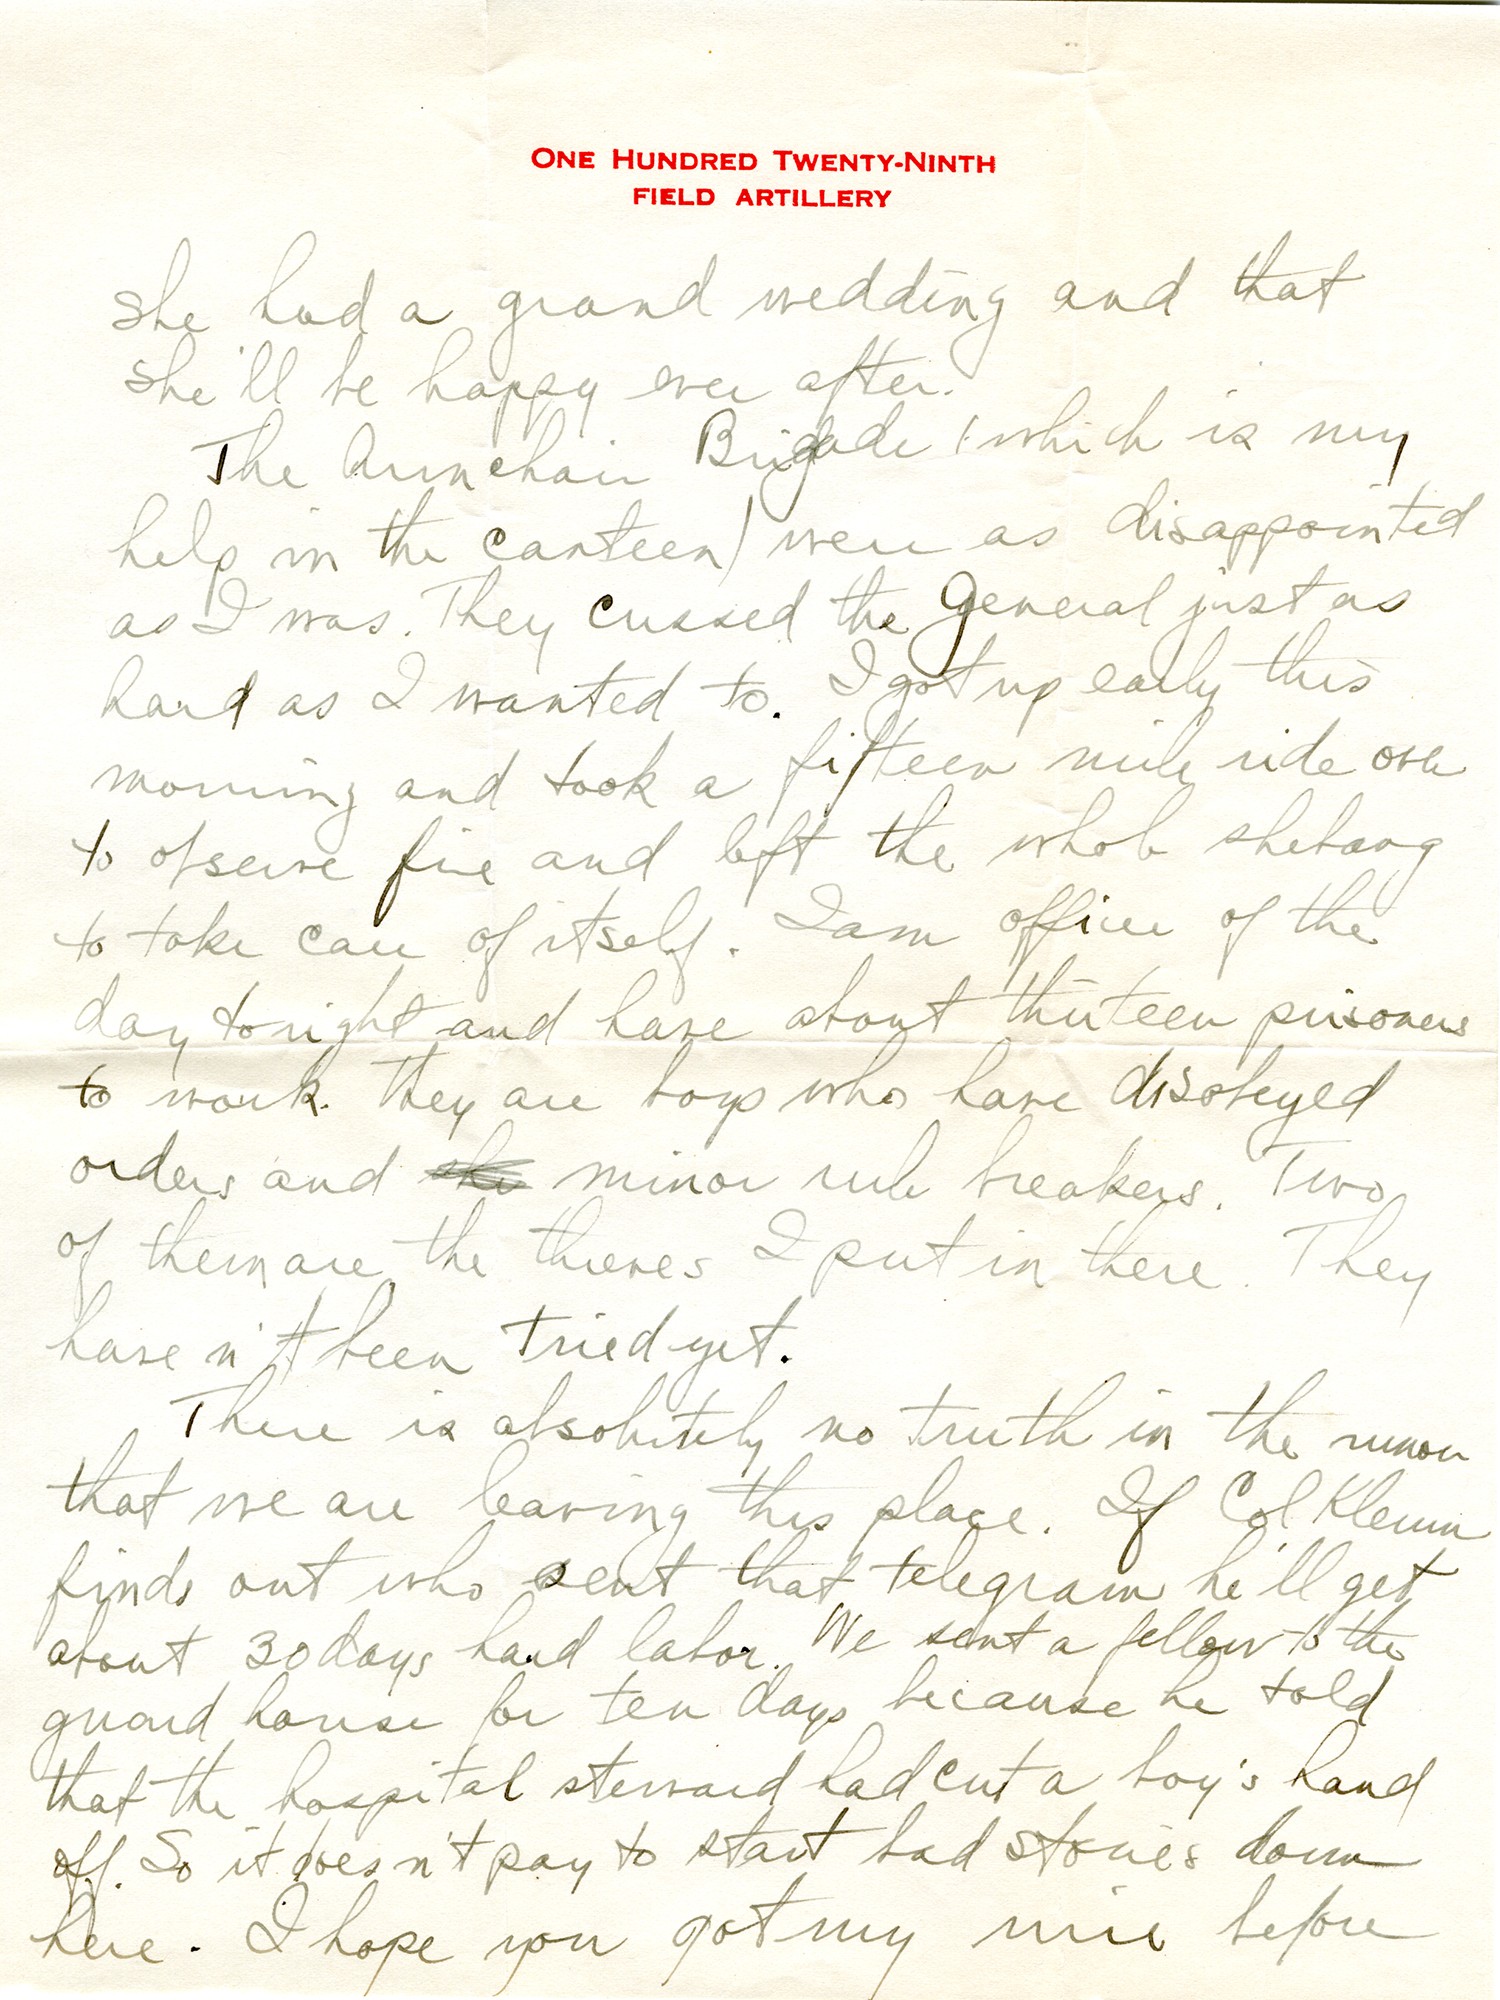 ONE HUNDRED TWENTY-NINTH
FIELD ARTILLERY
she had a grand wedding and that
she'll be happy ever after.
The Armchair Brigade (which is my
help in the canteen) were as disappointed
as I was. They cussed the General just as
hard as I wanted to. I got up early this
morning and took a fifteen mile ride over
to observe fire and left the whole shebang
to take care of itself. I am officer of the
day tonight and have about thirteen prisoners
to work. They are boys who have disobeyed
orders and minor rule breakers. Two
of them are the thieves I put in there. They
haven't been tried yet.
There is absolutely no truth in the rumor
that we are leaving this place. If Col Klemm
finds out who sent that telegram he'll get
about 30 days hard labor. We sent a fellow to the
guard house for ten days because he told
that the hospital steward had cut a boy's hand
off. So it doesn't pay to start bad stories down
here. I hope you got my wire before